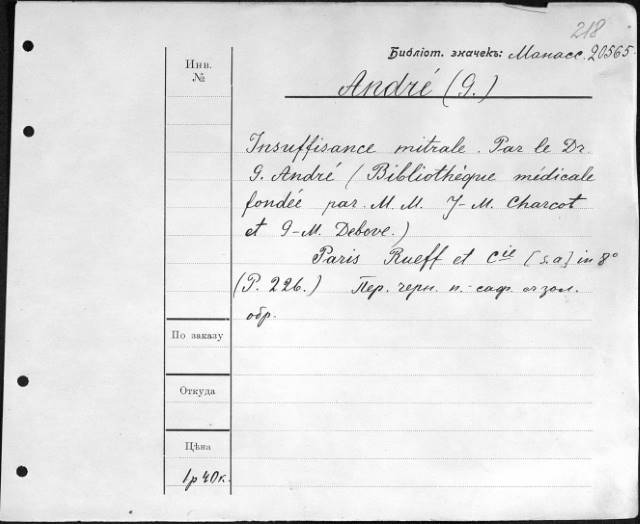 218
Библiот. значекъ: Манасс. 20565.
Инв.
№
André (G.)
Insuffisance mitrale. Par le Dr.
G. André (Bibliothèque médicale
fondée par M. M. J-M. Charcot
et G-M. Debove.)
Paris Rueff et Cie [s.a] in 8°
(P. 226.) Пер. черн. п.-саф. с зол.
обр.
По заказу
Откуда
Цѣна
1 р 40 к.